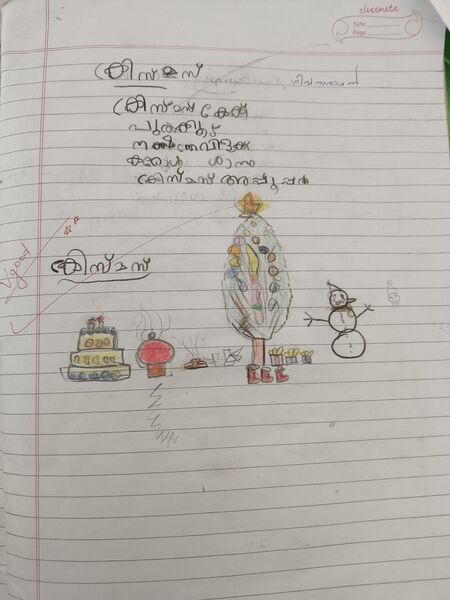 classmate
Date
Page
ക്രിസ്മസ്
ക്രിസ്മസ് കേക്ക്
പുൽക്കൂട്
നക്ഷത്രവിളക്ക്
കരോൾ ഗാനം
ക്രിസ്മസ് അപ്പൂപ്പൻ
V good
ക്രിസ്മസ്